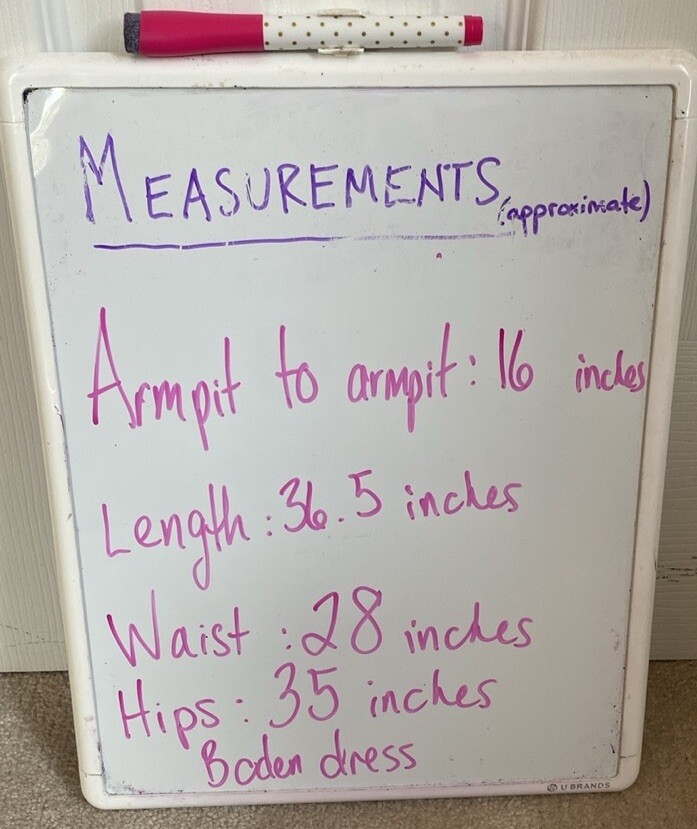 MEASUREMENTS (approximate)
Armpit to armpit: 16 inches
Length: 36.5 inches
Waist: 28 inches
Hips: 35 inches
Boden dress
U BRANDS